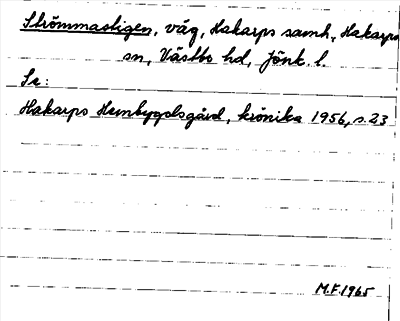 Strömmastigen, väg, Hakarps samh., Hakarps
sn, Västbo hd, Jönk. l.
Se:
Hakarps Hembygdsgård, krönika 1956, s. 23
M.F. 1965